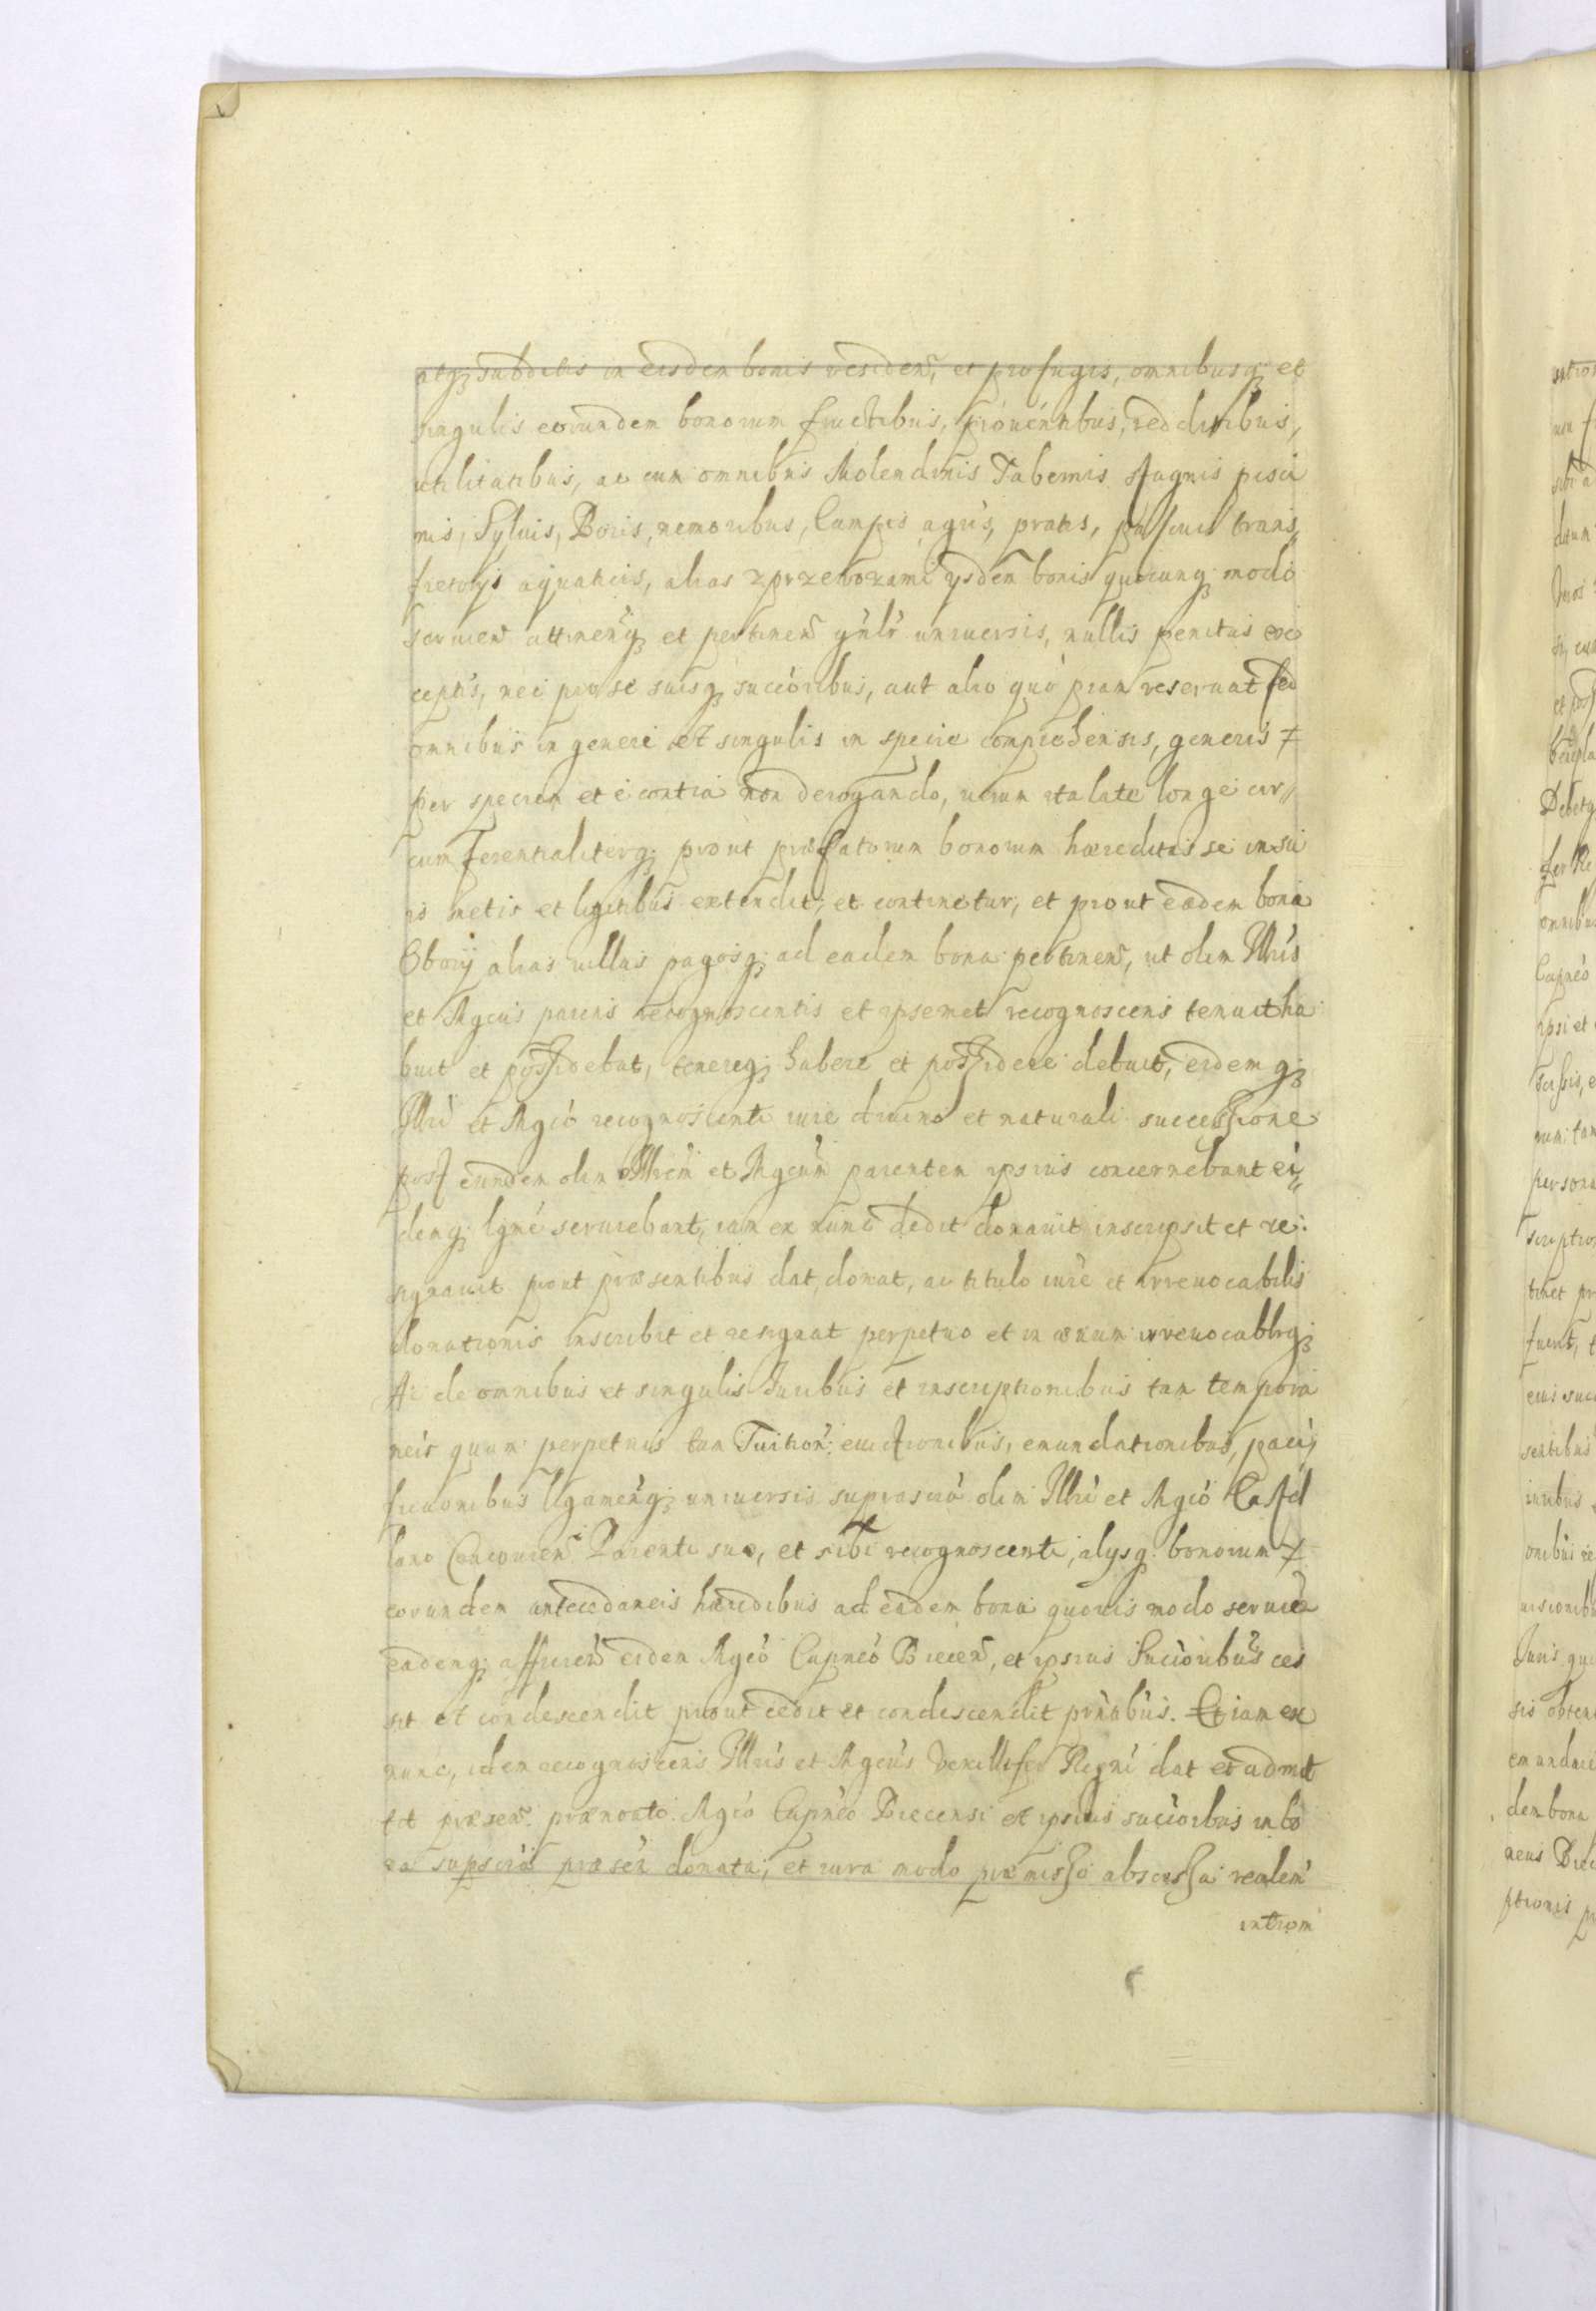 atq; subditis in eisdem bonis residen, et profugis, omnibusq; et
singulis eorundem bonorum fructibus, prouentibus, redditibus,
utilitatibus, ac cum omnibus Molendinis Tabernis Stagnis pisci
nis, Syluis, Boris, nemoribus, Campis, agris, pratis, pascuis trans„
fretorijs aquaticis, alias z przewozami ijsdem bonis quocunq; modo
seruien attinenq; et pertinen gnlr uniuersis, nullis penitus ex
ceptis, nec pro se suisq; succoribus, aut alio quo piam reseruat sed
omnibus in genere et singulis in specie comprehensis, generis
per speciem et e contra non derogando, uerum ita late longe cir„
cumferentialiterq; prout praefatorum bonorum haereditas se in su
is metis et limitibus extendit, et continetur, et prout eadem bona
Obory alias uillas pagosq; ad eadem bona pertinen, ut olim Illris
et Mgcus parens recognoscentis et ipsemet recognoscens tenuit ha
buit et possidebat, tenereq; habere et possidere debuit, eidemq;
Illri et Mgco recognoscenti iure diuino et naturali successione
post eundem olim Illrem et Mgcum parentem ipsius concernebant ei„
demq; lgme seruiebant, iam ex nunc dedit donauit inscripsit et re:
signauit prout praesentibus dat, donat, ac titulo uire et irreuocabilis
donationis inscribit et resignat perpetuo et in aeuum irreuocabblrq;
Ac de omnibus et singulis Iuribus et inscriptionibus tam tempora
neis quam perpetuis tam Tuition: euictionibus, emundationibus, paci„
ficaonibus lgamenq; uniuersis suprascro olim Illri et Mgco Castel
lano Parenti suo, et sibi recognoscenti, alysq. bonorum
eorundem antecedaneis haeredibus ad eadem bona quouis modo seruien
eademq; afficien eidem Mgco Capneo Biecen, et ipsius Succoribus ces
sit et condescendit prout cedit et condescendit pntibus. Et iam ex
nunc, idem recognoscens Illris et Mgcus Vexillifer Regni dat et admit
tit praesen. praenoato. Mgco Capneo Biecensi et ipsius succoribus in bo
na supscra praesen donata, et iura modo praemisso abscessa realem
introm